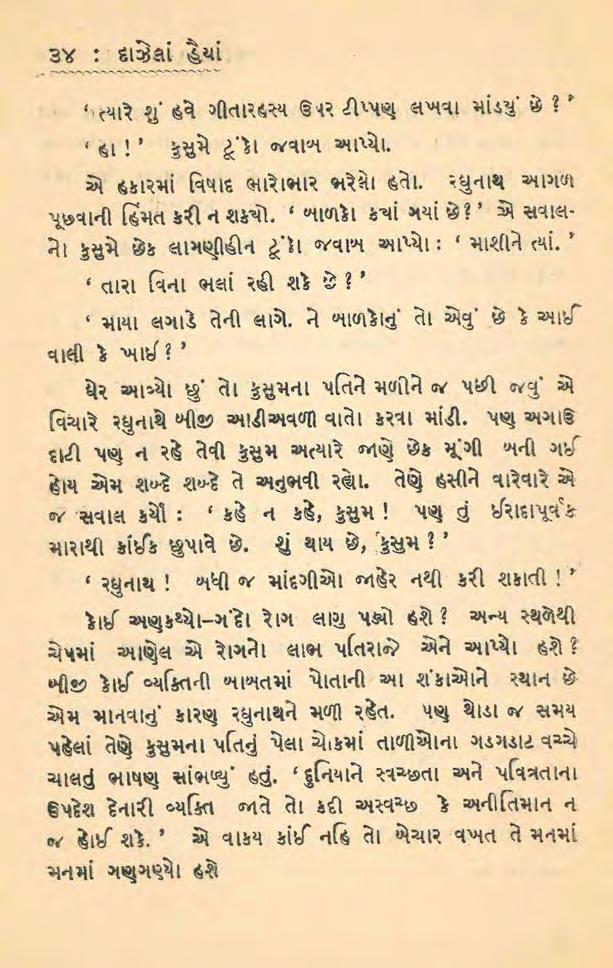 ૩૪ : દાઝેલાં હૈયાં
‘ ત્યારે શું હવે ગીતારહસ્ય ઉપર ટીપ્પણ લખવા માંડયું છે ? ’
‘ હા ! ’ કુસુમે ટૂંકો જવાબ આપ્યો.
એ હકારમાં વિષાદ ભારોભાર ભરેલો હતો. રઘુનાથ આગળ
પૂછવાની હિંમત કરી ન શકયો. ‘ બાળકો કયાં ગયાં છે?’ એ સવાલ-
નો કુસુમે છેક લાગણીહીન ટૂંકો જવાબ આપ્યો : ‘ માશીને ત્યાં. ’
‘ તારા વિના ભલાં રહી શકે છે ? ’
‘ માયા લગાડે તેની લાગે. ને બાળકોનું તો એવું છે કે આઈ
વાલી કે ખાઈ ? ’
ઘેર આવ્યો છું તો કુસુમના પતિને મળીને જ પછી જવું એ
વિચારે રઘુનાથે બીજી આડીઅવળી વાતો કરવા માંડી. પણ અગાઉ
દાટી પણ ન રહે તેવી કુસુમ અત્યારે જાણે છેક મૂંગી બની ગઈ
હોય એમ શબ્દે શબ્દે તે અનુભવી રહ્યો. તેણે હસીને વારેવારે એ
જ સવાલ કર્યો : ‘ કહે ન કહે, કુસુમ ! પણ તું ઈરાદાપૂર્વક
મારાથી કાંઈક છુપાવે છે. શું થાય છે, કુસુમ ? ’
‘ રઘુનાથ ! બધી જ માંદગીઓ જાહેર નથી કરી શકાતી ! ’
કોઈ અણકથ્યો–ગંદો રોગ લાગુ પડ્યો હશે ? અન્ય સ્થળેથી
ચેપમાં આણેલ એ રોગનો લાભ પતિરાજે એને આપ્યો હશે ?
બીજી કોઈ વ્યક્તિની બાબતમાં પોતાની આ શંકાઓને સ્થાન છે
એમ માનવાનું કારણ રઘુનાથને મળી રહેત. પણ થોડા જ સમય
પહેલાં તેણે કુસુમના પતિનું પેલા ચોકમાં તાળીઓના ગડગડાટ વચ્ચે
ચાલતું ભાષણ સાંભળ્યું હતું. ‘ દુનિયાને સ્વચ્છતા અને પવિત્રતાના
ઉપદેશ દેનારી વ્યક્તિ જાતે તો કદી અસ્વચ્છ કે અનીતિમાન ન
જ હોઈ શકે. ’ એ વાકય કાંઈ નહિ તો બેચાર વખત તે મનમાં
મનમાં ગણગણ્યો હશે